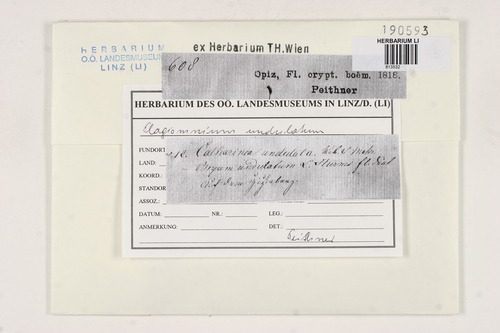 190593
HERBARIUM LI
HERBARIUM
O.Ö. LANDESMUSEUM
LINZ (LI)
ex Herbarium TH.Wien
608
Opiz, Fl. crypt. boëm. 1818.
Peithner
HERBARIUM DES OÖ. LANDESMUSEUMS IN LINZ/D. (LI)
Plagiomnium undulatum
FUNDORT
LAND:
KOORD.:
STANDOR
ASSOZ.:
Catharinea undulata
Bryum undulatum L. Sturms fl.
DATUM: NR.: LEG.:
ANMERKUNG: DET.: Peithner